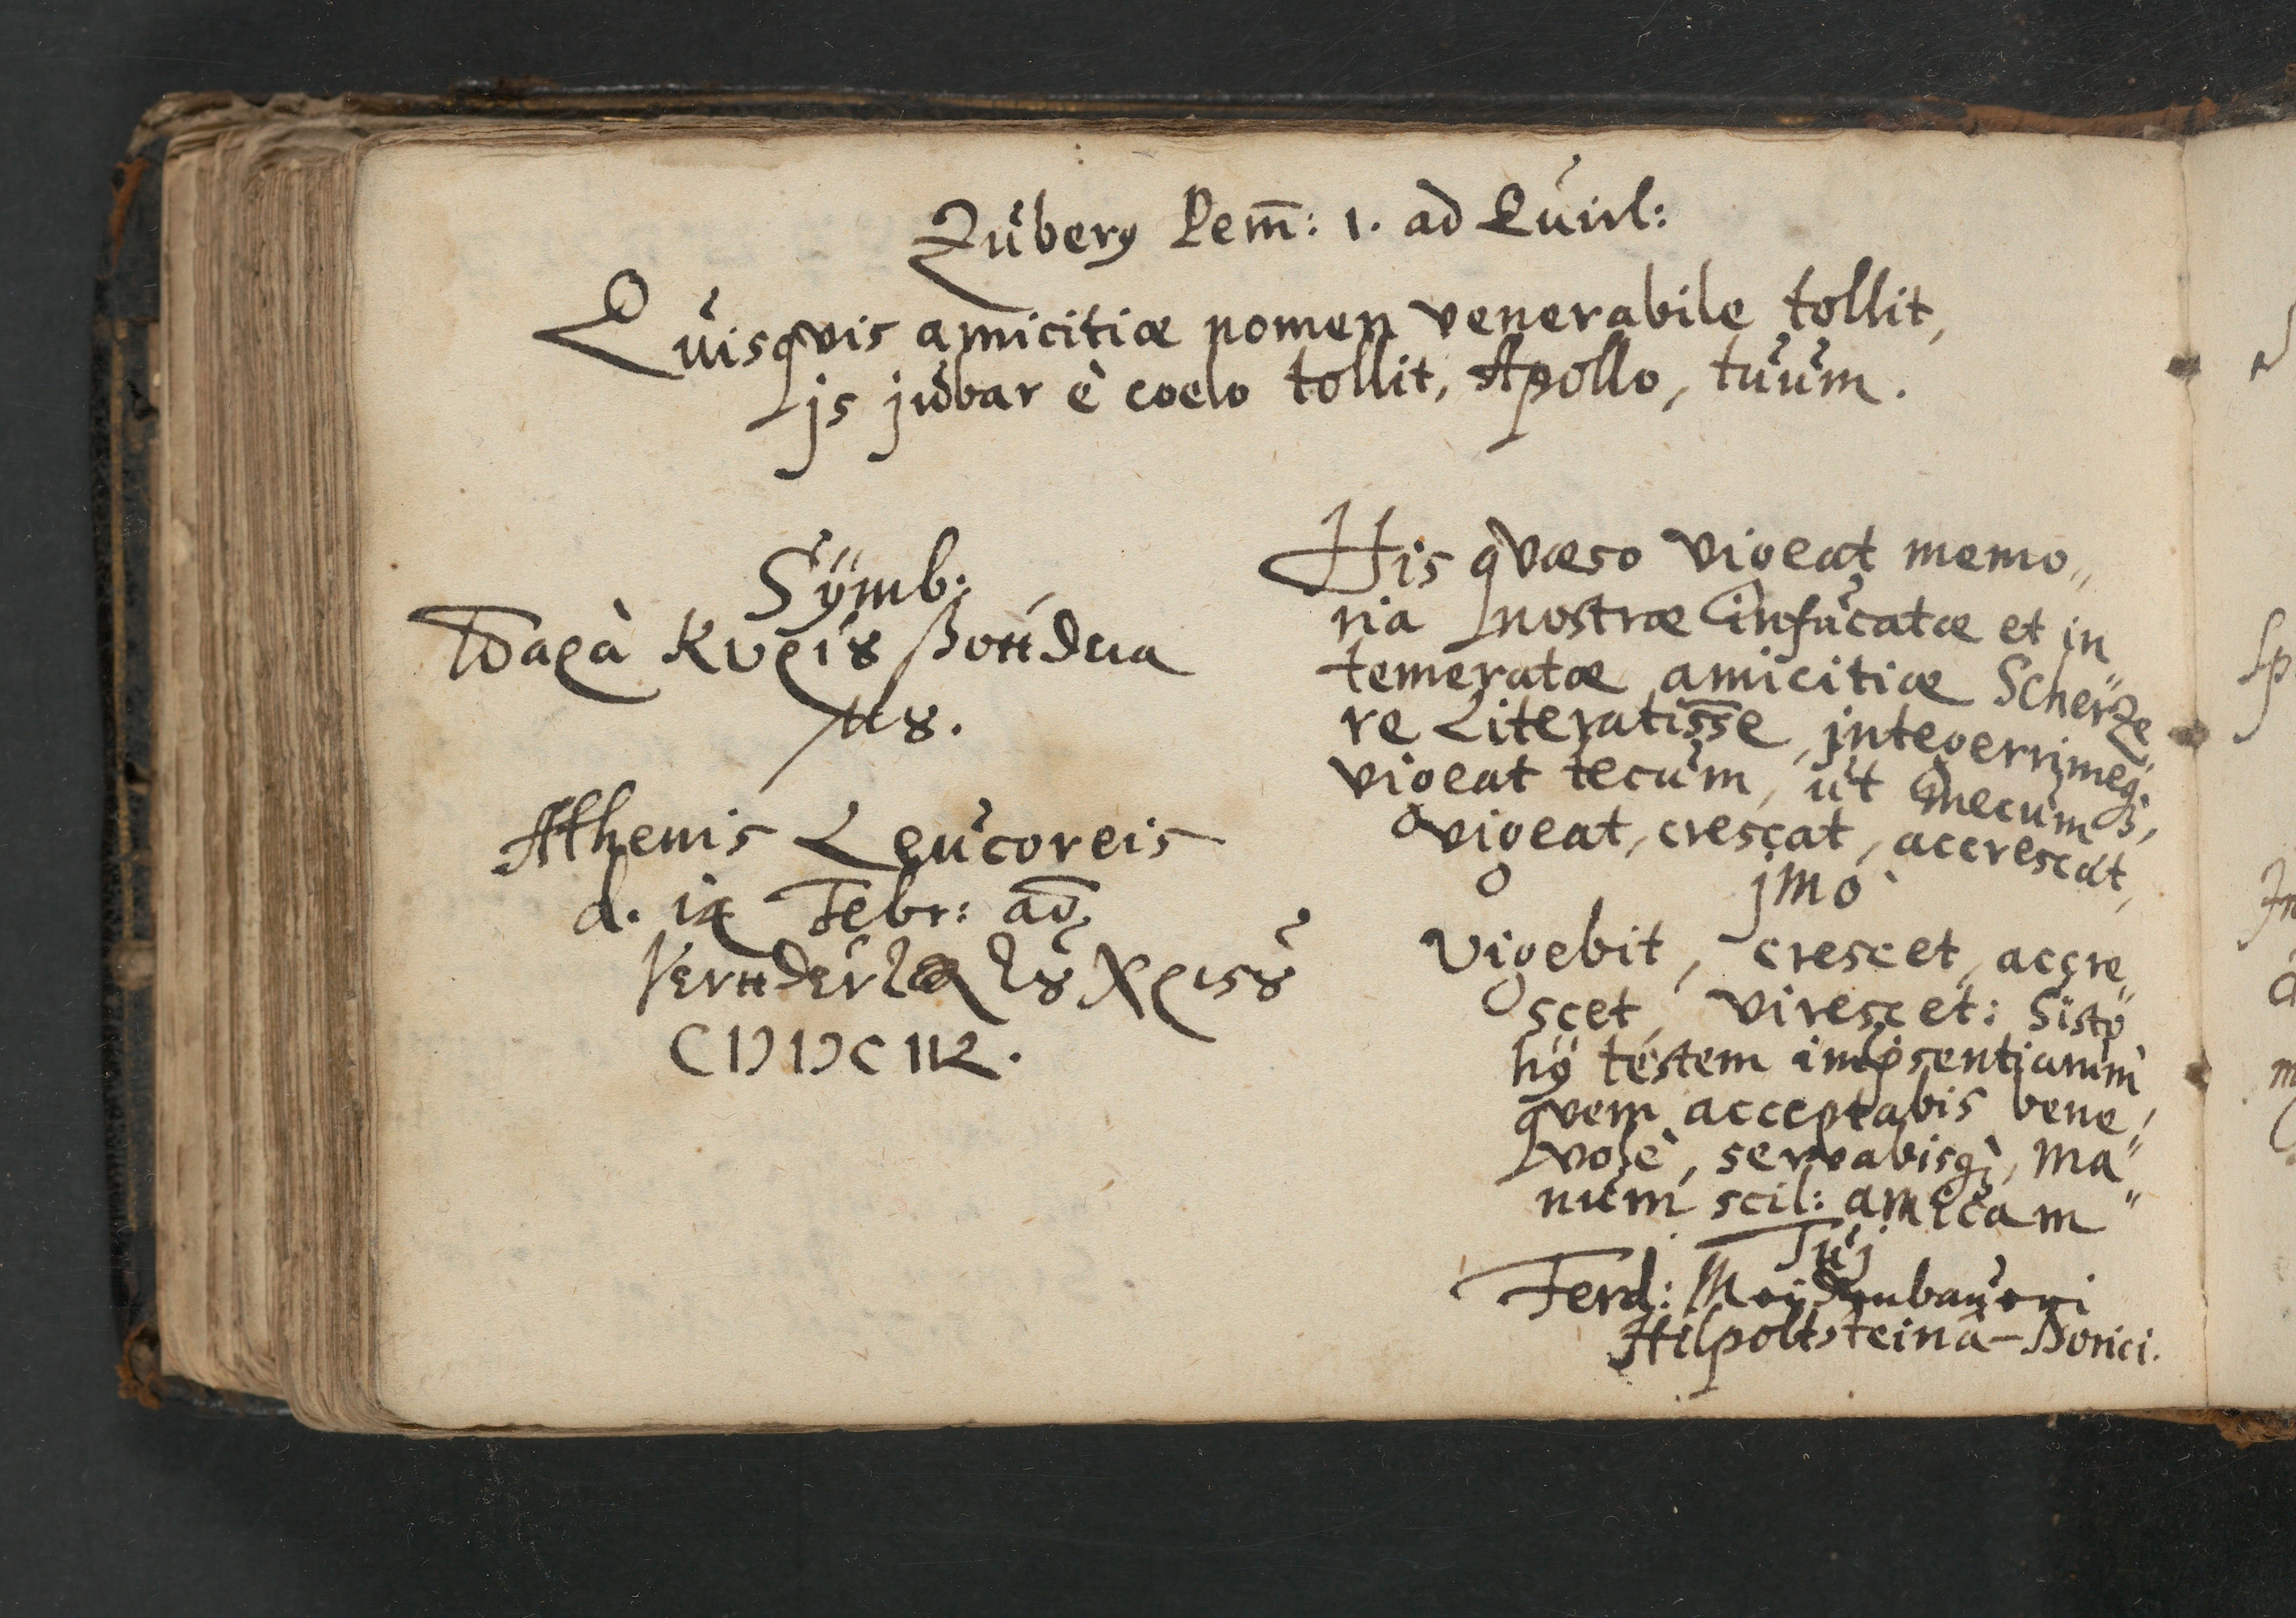 Zuberg Pem̄: 1. ad Quirl:
Quisqvis amicitiæ nomen venerabile tollit,
js jubar è coelo tollit, Apollo, tuum.
Sÿmb:
Παρὰ Κυρίȣ βοήθεια
μȣ.
Athenis Leucoreis
d. ix Febr: aō
CIƆ IƆC
His qvæso vigeat memo„
ria nostræ infucatæ et in„
temeratæ amicitiæ Scherze„
re Literatisse, integerrimeq;
vigeat tecum, ut mecum
vigeat, crescat, accrescat,
jmò
Vigebit, crescet, accre„
scet, virescet: Sisto
hÿ testem impsentiarum
qvem acceptabis bene„
volè, servabisq;, ma„
num scil: amicam
Tuj
Ferd:
Hilpoltsteinâ-Norici.